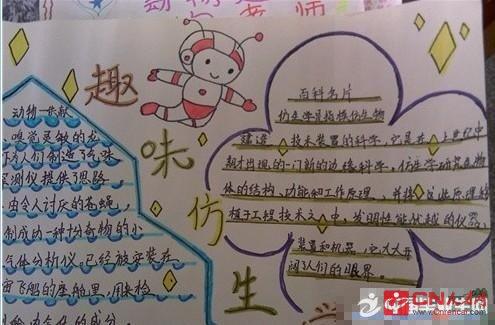 趣味仿生
动物贡献
嗅觉灵敏的龙
人们制造了气味
探测仪提供了思路
由令人讨厌的苍蝇
制成功一种十分奇特的小
气体分析仪.已经被安装在
宙飞船的座舱里,用来检
舱内气体的成分
百科名片
仿生学是指模仿生物
建造技术装置的科学,它是在上世纪中
期才出现的一门新的边缘科学,仿生学研究生物
体的结构、功能和工作原理、并将这些原理
植于工程技术之中,发明性能优越的仪器、
装置和机器,它大大开
阔了人们的眼界.
CN人才
www.cnrencai.com